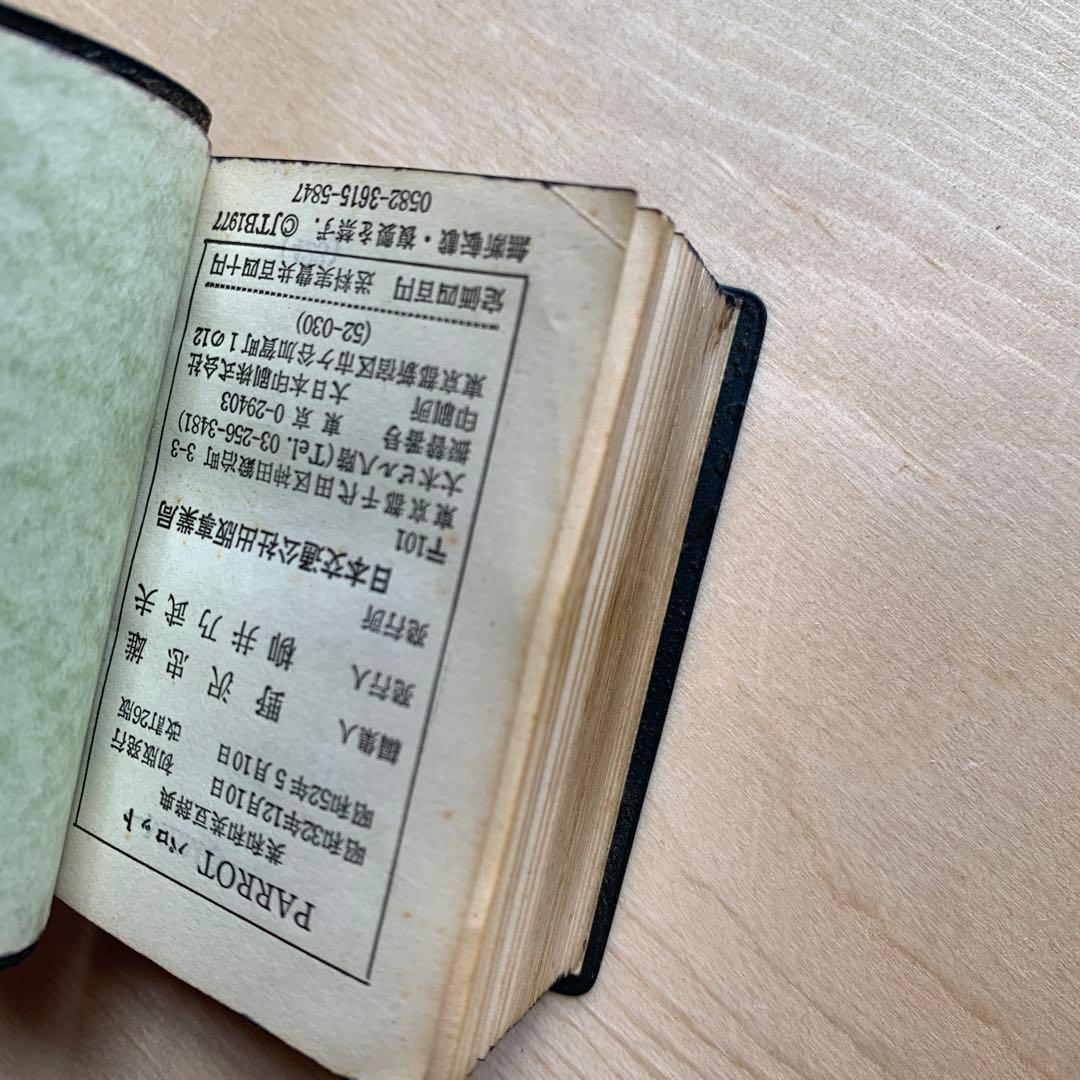 PARROT パロット
英和和英豆辞典
昭和32年12月10日 初版発行
昭和52年5月10日 改訂26版
編集人 野沢忠雄
発行人 柳井乃武夫
発行所
日本交通公社出版事業局
〒101
東京都千代田区神田鍛冶町3-3
大木ビル八階(Tel. 03-256-3481)
振替番号 東京0-29403
印刷所 大日本印刷株式会社
東京都新宿区市ケ谷加賀町1の12
(52-030)
定価四百円 送料実費共百四十円
無断転載・複製を禁ず. ©JTB1977
0582-3615-5847